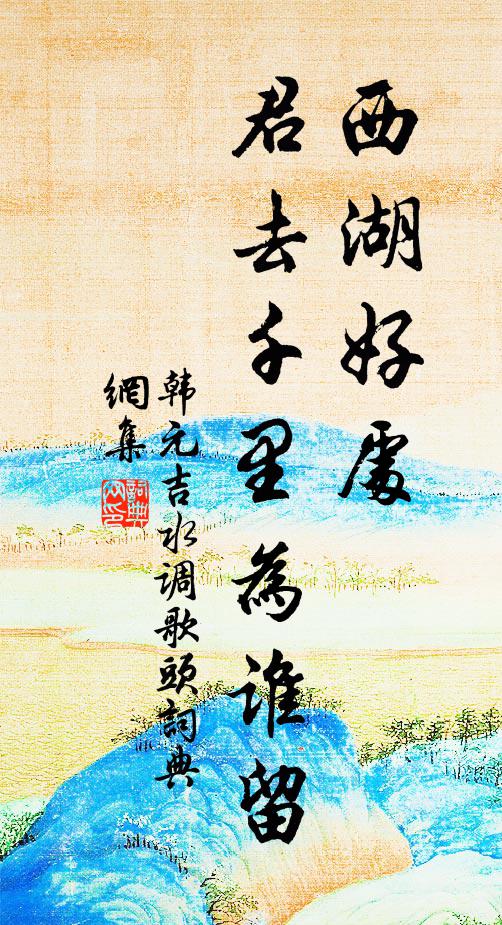 西湖好處
君去千里為谁留
韩元吉水调歌頭詞典
網集
詞典